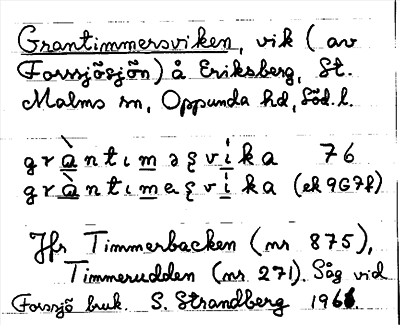 Grantimmersviken, vik (av
Forssjösjön) å Eriksberg, St.
Malms sn, Oppunda hd, Söd. l.
gràntıməʂvika 76
gràntımaʂvika (ek 9G7f)
Jfr Timmerbacken (nr 875),
Timmerudden (nr 271). Såg vid
Forssjö bruk. S. Strandberg 1961.